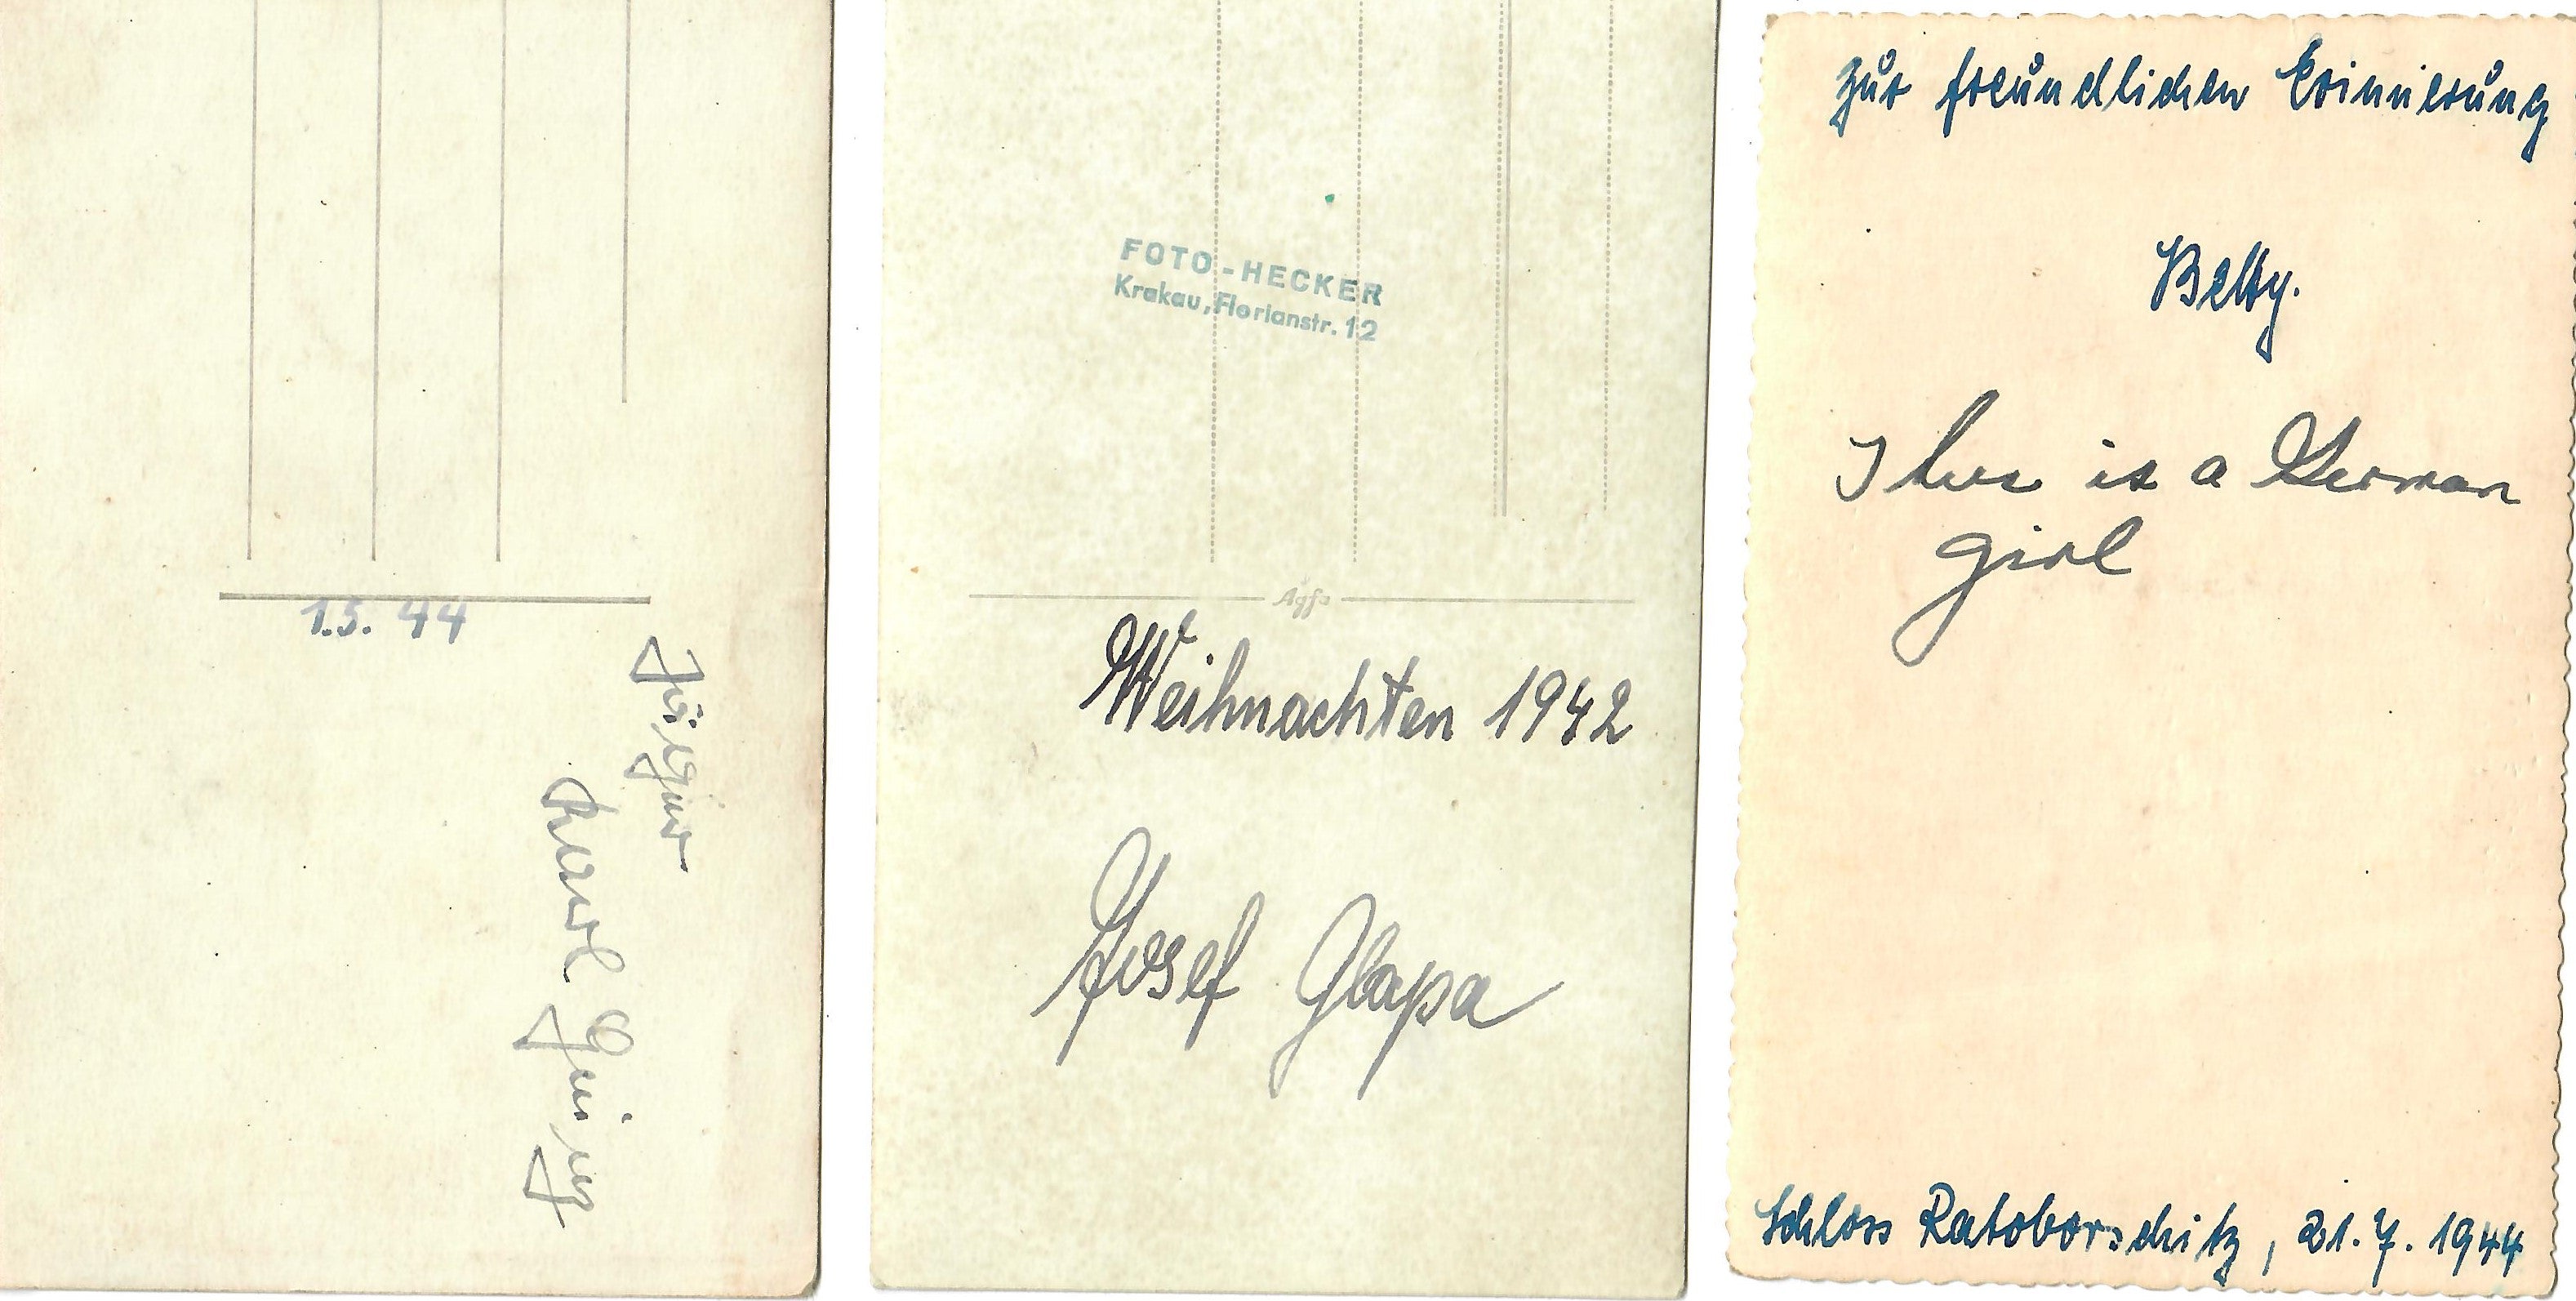 1.5. 44
Karl
FOTO-HECKER
Krakau, Florianstr. 12
Agfa
Weihnachten 1942
Josef Glapa
Zur freundlichen Erinnerung
Betty.
This is a German
girl
Schloss Ratoborschitz, 21.7.1944